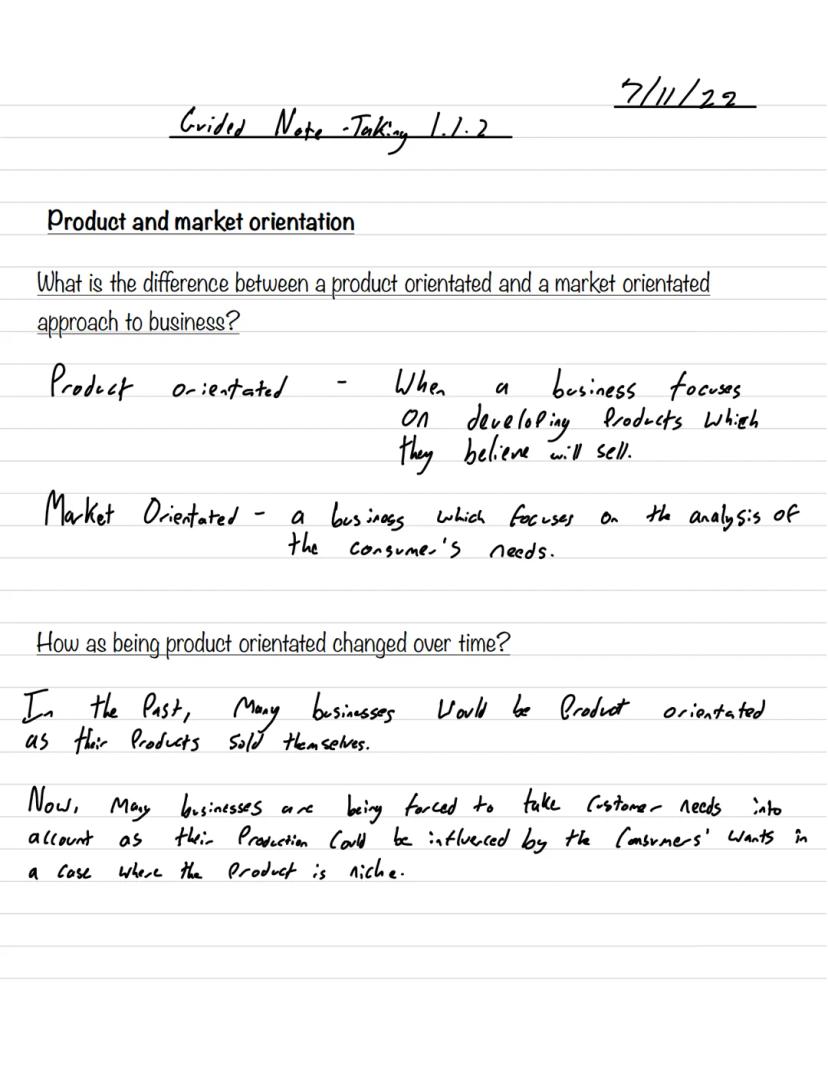 7/11/22
Guided Note-Taking 1.1.2
Product and market orientation
What is the difference between a product orientated and a market orientated
approach to business?
Product orientated - When a business focuses
on developing Products which
they believe will sell.
Market Orientated - a business which focuses on the analysis of
the consumer's needs.
How as being product orientated changed over time?
In the Past, Many businesses Would be Product orientated
as their Products Sold themselves.
Now, Many businesses are being forced to take Customer needs into
account as their Production Could be influenced by the Consumers' Wants in
a Case Where the Product is niche.